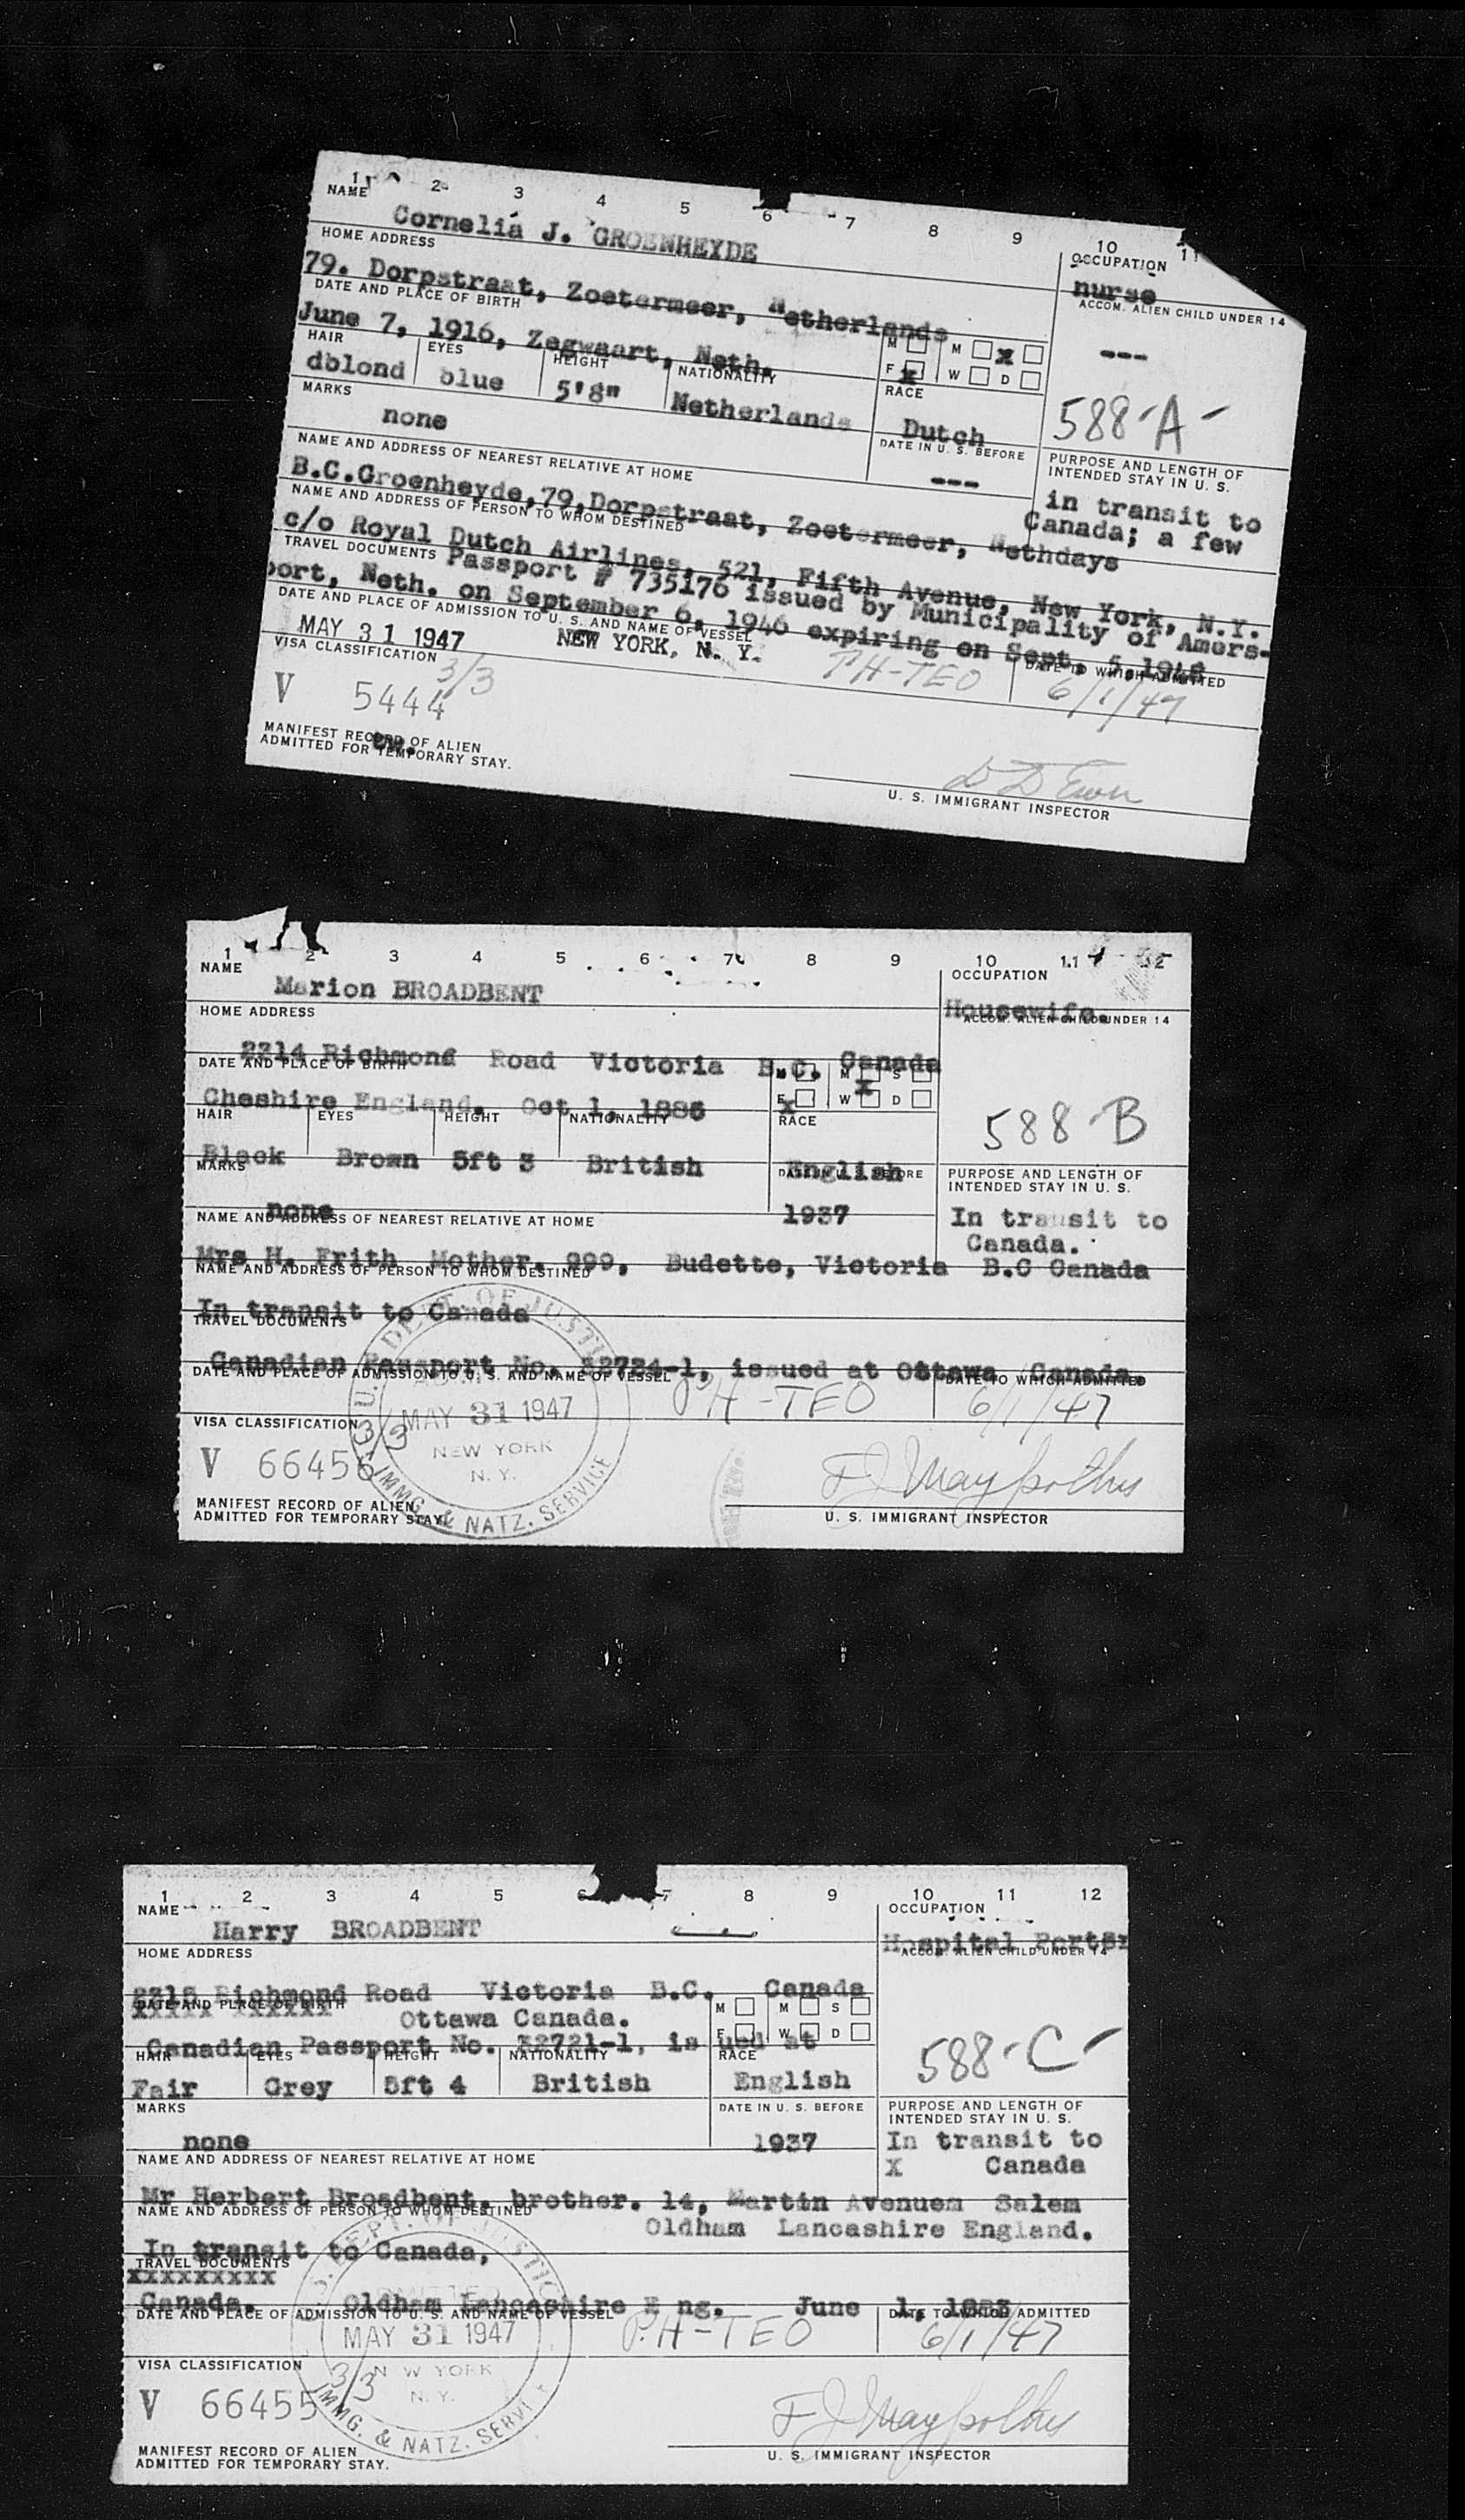 1 2 3 4 5 6 7 8 9 10 11
NAME
Cornelia J. GROENHEYDE
OCCUPATION
nurse
HOME ADDRESS
79. Dorpstraat, Zoetermeer, Netherlands
ACCOM. ALIEN CHILD UNDER 14
---
DATE AND PLACE OF BIRTH
June 7, 1916, Zegwaart, Neth.
M M x
F x W D
HAIR EYES HEIGHT NATIONALITY RACE
dblond blue 5'8" Netherlands Dutch
588-A-
MARKS
none
DATE IN U. S. BEFORE
---
PURPOSE AND LENGTH OF
INTENDED STAY IN U. S.
in transit to
Canada; a few
days
NAME AND ADDRESS OF NEAREST RELATIVE AT HOME
B.C.Groenheyde,79,Dorpstraat, Zoetermeer, Neth
NAME AND ADDRESS OF PERSON TO WHOM DESTINED
c/o Royal Dutch Airlines, 521, Fifth Avenue, New York, N.Y.
TRAVEL DOCUMENTS Passport # 735176 issued by Municipality of Amers-
port, Neth. on September 6, 1946 expiring on Sept. 5,1948
DATE AND PLACE OF ADMISSION TO U. S. AND NAME OF VESSEL
DATE TO WHICH ADMITTED
MAY 31 1947 NEW YORK, N. Y. PH-TEO 6/1/47
VISA CLASSIFICATION 3/3
V 5444
MANIFEST RECORD OF ALIEN
ADMITTED FOR TEMPORARY STAY.
U. S. IMMIGRANT INSPECTOR
1 2 3 4 5 6 7 8 9 10 11 12
NAME
Marion BROADBENT
OCCUPATION
Housewife.
HOME ADDRESS
ACCOM. ALIEN CHILD UNDER 14
2314 Richmond Road Victoria B.C. Canada
DATE AND PLACE OF BIRTH
M M x S
Cheshire England. Oct 1, 1885
F x W D
HAIR EYES HEIGHT NATIONALITY RACE
588-B
Black Brown 5ft 3 British English
MARKS
DATE IN U. S. BEFORE
PURPOSE AND LENGTH OF
INTENDED STAY IN U. S.
none 1937
In transit to
Canada.
NAME AND ADDRESS OF NEAREST RELATIVE AT HOME
Mrs H. Frith Mother. 999, Budette, Victoria B.C Canada
NAME AND ADDRESS OF PERSON TO WHOM DESTINED
In transit to Canada
TRAVEL DOCUMENTS
Canadian Passport No. 32724-1, issued at Ottawa Canada.
DATE AND PLACE OF ADMISSION TO U. S. AND NAME OF VESSEL
DATE TO WHICH ADMITTED
PH-TEO 6/1/47
U. S. DEPT. OF JUSTICE
MAY 31 1947
NEW YORK
N. Y.
IMMG. & NATZ. SERVICE
VISA CLASSIFICATION 3/3
V 66456
MANIFEST RECORD OF ALIEN
ADMITTED FOR TEMPORARY STAY.
U. S. IMMIGRANT INSPECTOR
1 2 3 4 5 6 7 8 9 10 11 12
NAME
Harry BROADBENT
OCCUPATION
Hospital Porter
HOME ADDRESS
ACCOM. ALIEN CHILD UNDER 14
2315 Richmond Road Victoria B.C. Canada
DATE AND PLACE OF BIRTH
xxxxx xxxxxx Ottawa Canada.
M M S
F W D
Canadian Passport No. 32721-1, is ued at
HAIR EYES HEIGHT NATIONALITY RACE
588-C-
Fair Grey 5ft 4 British English
MARKS
DATE IN U. S. BEFORE
PURPOSE AND LENGTH OF
INTENDED STAY IN U. S.
none 1937
In transit to
X Canada
NAME AND ADDRESS OF NEAREST RELATIVE AT HOME
Mr Herbert Broadbent. brother. 14, Martin Avenuem Salem
NAME AND ADDRESS OF PERSON TO WHOM DESTINED
Oldham Lancashire England.
In transit to Canada,
TRAVEL DOCUMENTS
xxxxxxxxx
Canada. Oldham Lancashire E ng. June 1, 1883
DATE AND PLACE OF ADMISSION TO U. S. AND NAME OF VESSEL
DATE TO WHICH ADMITTED
PH-TEO 6/1/47
DEPT. OF JUSTICE
ADMITTED
MAY 31 1947
N W YORK
N. Y.
IMMG. & NATZ. SERVI
VISA CLASSIFICATION 3/3
V 66455
MANIFEST RECORD OF ALIEN
ADMITTED FOR TEMPORARY STAY.
U. S. IMMIGRANT INSPECTOR